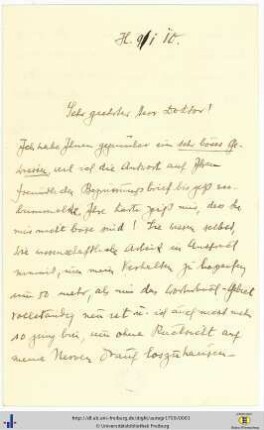 H. 9/I 10.
Sehr geehrter Herr Doktor!
Ich habe Ihnen gegenüber ein sehr böses Ge-
wissen, weil ich die Antwort auf Ihren
freundlichen brief bis jetzt ver-
bummelte. Ihre Karte zeigt mir, dass Sie
mir nicht böse sind! Sie wissen selbst,
wie wissenschaftliche Arbeit in Anspruch
nimmt, um mein Verhalten zu begreifen
um so mehr, als mir das
vollständig neu ist u. ich auch nicht mehr
so jung bin, um ohne Rücksicht auf
meine Nerven drauf loszuhausen.
http://dl.ub.uni-freiburg.de/diglit/autogr1703/0001
© Universitätsbibliothek Freiburg